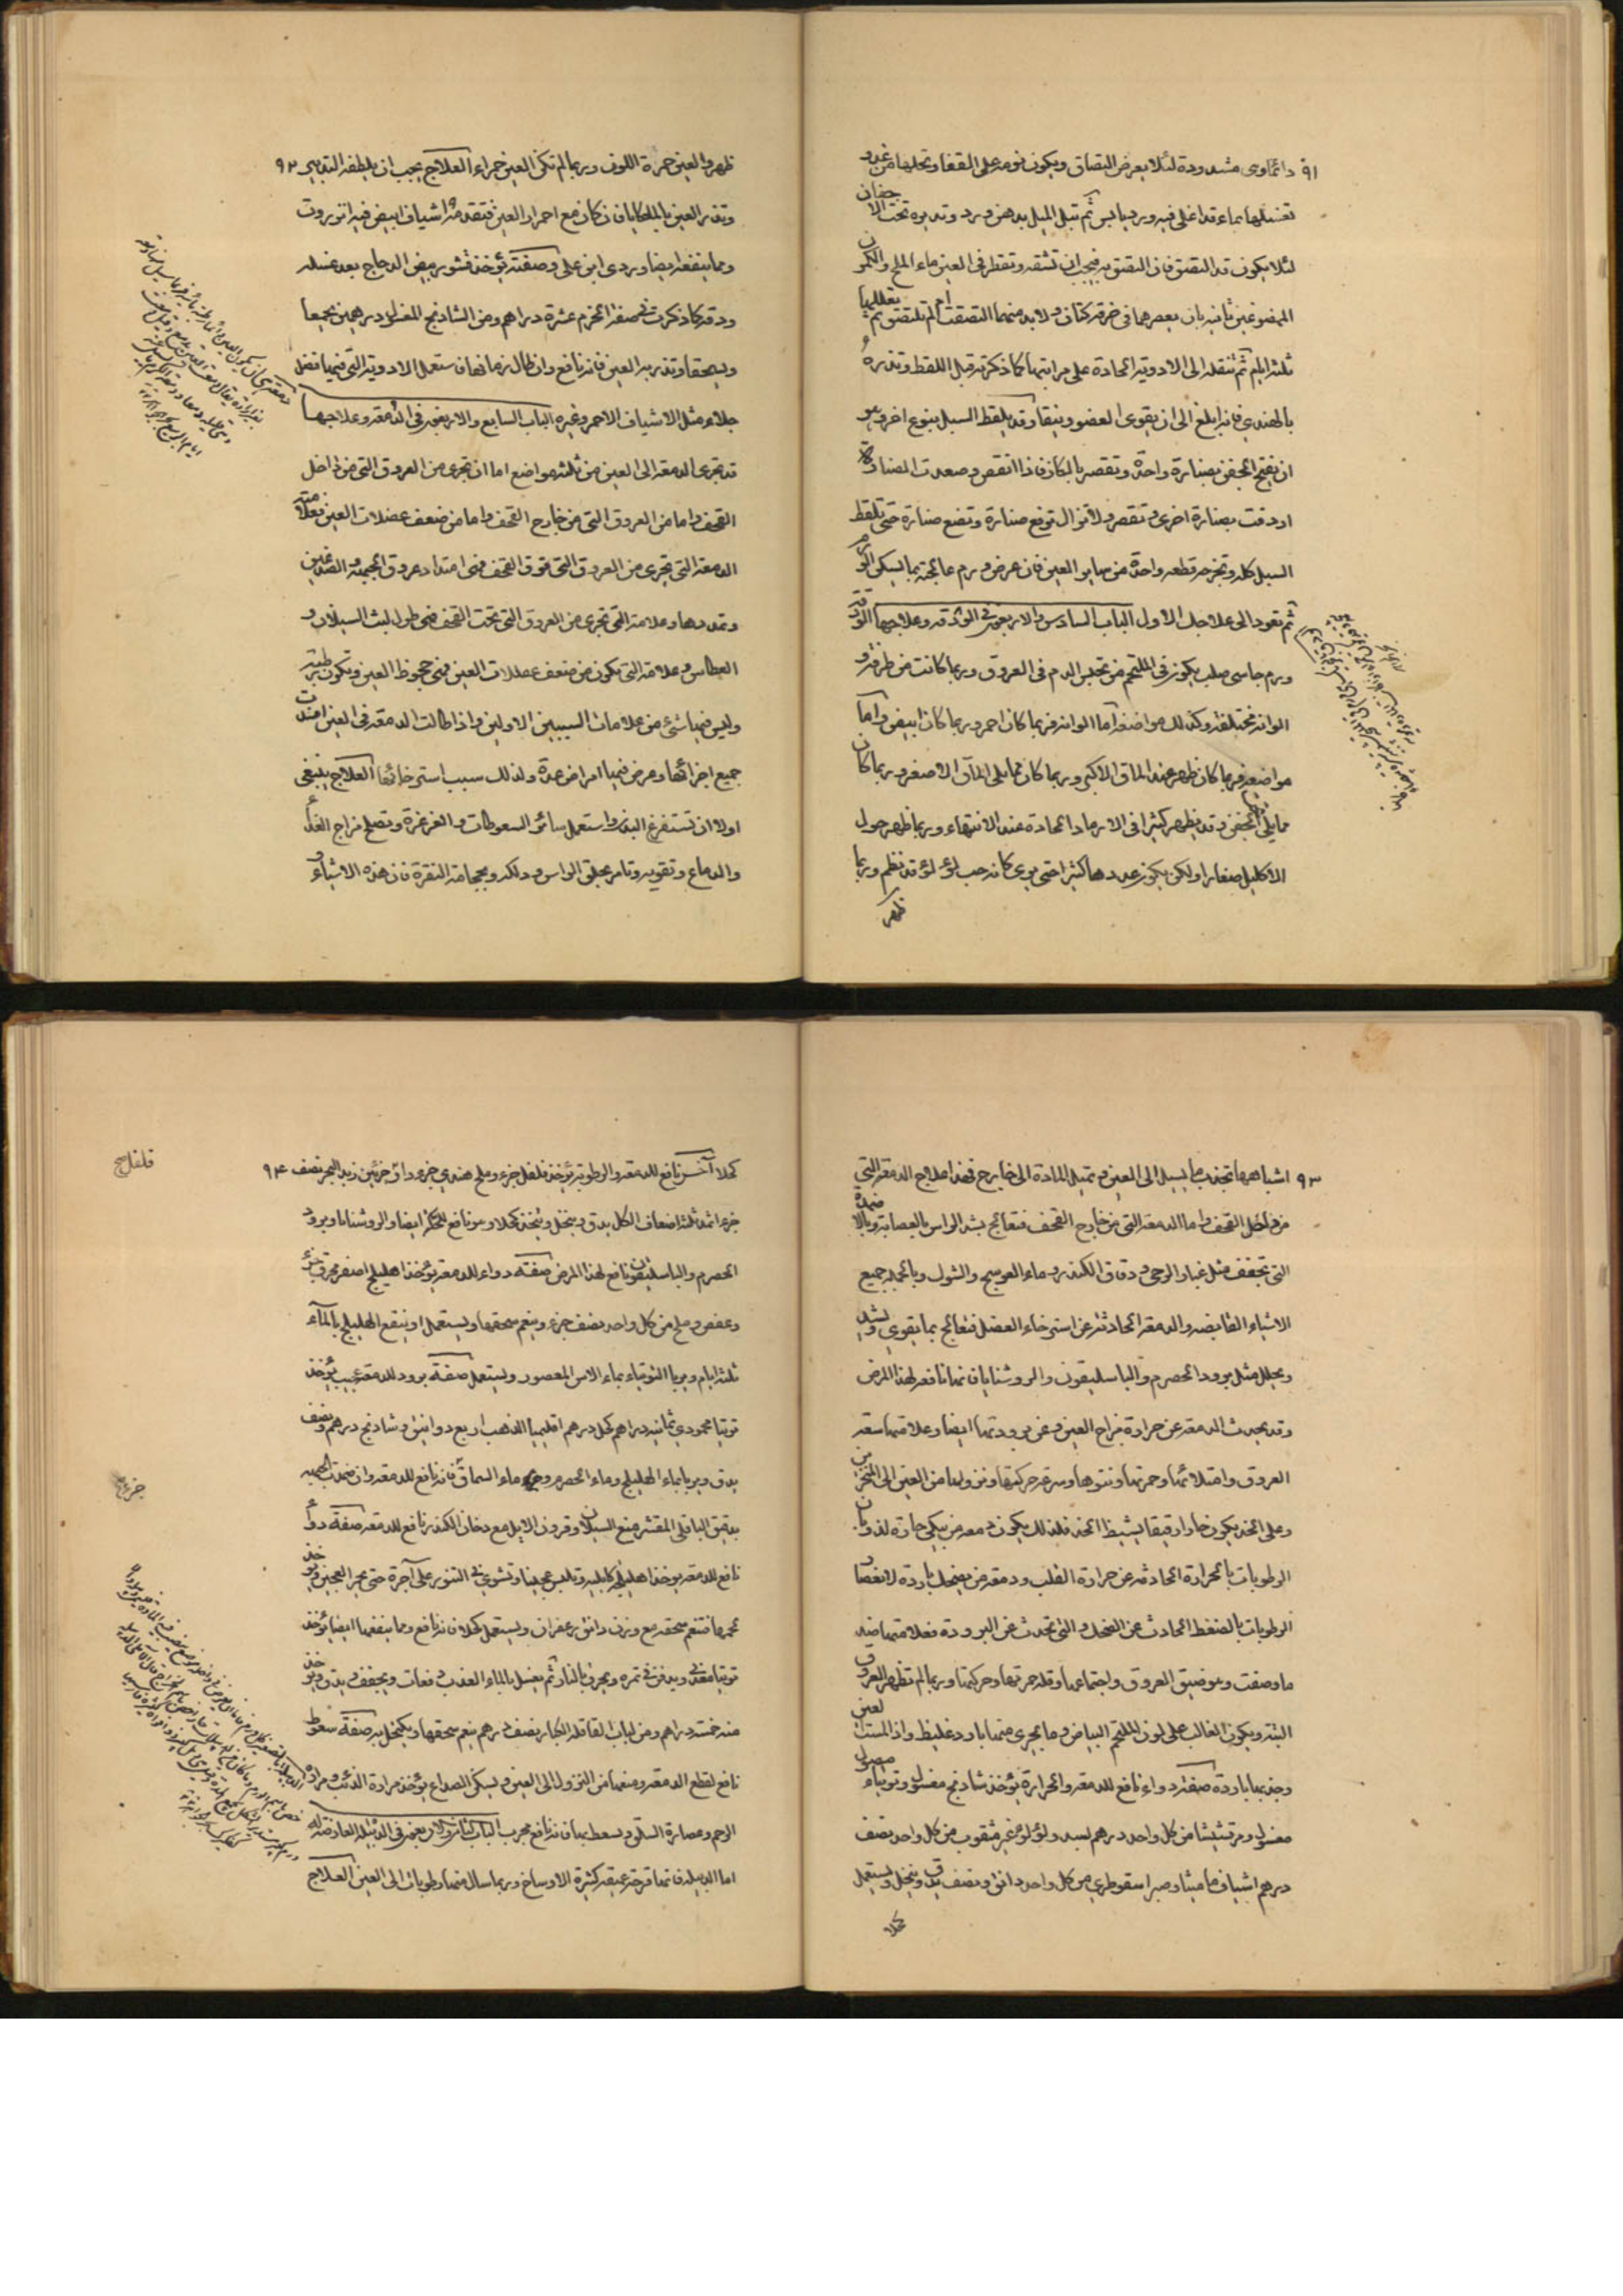 ٩١ دائما وهي مشدودة لئلا يعرض التصاق ويكون نومه على القفا وتحلها من غدو
تغسلها بماء قد اغلى فيه ورد يابس ثم تبل الميل بدهن ورد وتديره تحت الاجفان
لئلا يكون قد التصق فان التصق به فيجب ان تشقه وتقطر في العين ماء الملح والكمون
الممضوغين ثانيه بان يعصرهما في خرقة كتان ولا بد منهما التصقت ام لم تلتصق ثم
ثلثة ايام ثم تنقله الى الادوية الحادة على مراتبها كما ذكرته قبل اللقط وتذره
بالهندي فانه ابلغ الى ان يقوى العضو وينقا وقد يلقط السبل بنوع اخر وهو
ان يفتح الجفن بصنارة واحدة وتقصر بالمكاز فاذا انقص وصعدت الصنارة
اردفت بصنارة اخرى وتقص ولا تزال ترفع صنارة وتضع صنارة حتى تلقط
السبل كله وتخرجه قطعه واحدة من ساير العين فان عرض ورم عالجته بما يسكن الورم
ثم تعود الى علاجك الاول الباب السادس والاربعون في الودقة وعلاجها الودقة
ورم جاسى صلب يكون في الملتحم من تحلب الدم في العروق وربما كانت من طرفه و
الوانه مختلفه وكذلك مواضعه اما الوانه فربما كان احمر وربما كان ابيض واما
مواضعه فربما كان ظهر عند الماق الاكبر وربما كان مما يلى الماق الاصغر وربما كان
مما يلي الجفن وقد يظهر كثيرا في الارماد الحادة عند الانتهاء وربما ظهر حول
الاكليل صغارا ولكن يكون عددها كثيرا حتى يرى كانه حب لؤلؤ قد نظم وربما
ظهر
ظهر والعين حمرة اللون وربما لم تكن العين حمراء العلاج يجب ان يلطف التدبير ٩٢
وتذر العين بالملكايا فان كان مع احمرار العين فتقدمه اشياف ابيض فيه انزروت
ومما ينفعه ايضا وردي ابن على وصفته يؤخذ قشور بيض الدجاج بعد غسله
ودقه كما ذكرت في صفة المحرم عشرة دراهم ومن الشادنج المغسول درهمين يجمعا
ويسحقا وتذر به العين فانه نافع وان طال زمانها فاستعمل الادوية التي فيها فضل
جلاء مثل الاشياف الاحمر وغيره الباب السابع والاربعون في الدمعة وعلاجها
قد تجرى الدمعة الى العين من ثلثة مواضع اما ان تجرى من العروق التي من داخل
القحف واما من العروق التي من خارج القحف واما من ضعف عضلات العين فعلامة
الدمعة التي تجرى من العروق التي فوق القحف فهي امتداد عروق الجبهة والصدغين
وتمددها وعلامة التي تجرى من العروق التي تحت القحف فهي طول لبث السيلان و
العطاس وعلامة التي تكون من ضعف عضلات العين فهي جحوظ العين وتكون رطبة
وليس فيها شئ من علامات السببين الاولين واذا طالت الدمعة في العين افسدت
جميع اجزائها وعرض فيها امراض عدة ولذلك سبب استرخائها العلاج ينبغى
اولا ان تستفرغ البدن واستعمل سائر السعوطات والغرغرة وتصلح مزاج الغذاء
والدماغ وتقويه وتامر بحلق الراس ودلكه وبحجامة النقرة فان هذه الاشياء و
٩٣ اشباهها تجذب ما يسيل الى العين وتميل المادة الى خارج فهذا علاج الدمعة التي
من داخل القحف واما الدمعة التي من خارج القحف فتعالج بشد الراس بالعصابة وبالاضمدة
التي تجفف مثل غبار الرحى ودقاق الكندر وماء العوسج والشوك وبالجملة جميع
الاشياء القابضه والدمعة الحادثة عن استرخاء العضل فتعالج بما يقوي ويشد
ويحلل مثل برود الحصرم والباسليقون والروشنايا فانها نافعة لهذا المرض
وقد يحدث الدمعة عن حرارة مزاج العين وعن برودتها ايضا وعلامتها سعة
العروق وامتلائها وحمرتها ونتوها وسرعة حركتها ونزولها من العين الى المنخرين
وعلى الخد يكون حارا رقيقا يشيط الخد فلذلك يكون دمعة من يبكي حارة لذوبان
الرطوبات بالحرارة الحادثة عن حرارة القلب ودمعة من يضحك باردة لانعصار
الرطوبات بالضغط الحادث عن الضحك والتي تحدث عن البرودة فعلامتها ضد
ما وصفت وهو ضيق العروق واجتماعها وقلة حمرتها وحركتها وربما لم تظهر العروق
البتة ويكون الغالب على لون الملتحم البياض وما يجرى منها بارد غليظ واذا لمست العين
وجدتها باردة صفة دواء نافع للدمعة والحرارة يؤخذ شادنج مغسول وتوتياء
مغسول ومرقشيثا من كل واحد درهم لبسد ولؤلؤ غير مثقوب من كل واحد نصف
درهم اشياف ماميثا وصبر اسقوطري من كل واحد دانق ونصف يدق وينخل ويستعمل
كحلا
كحلا آخر نافع للدمعة والرطوبة يؤخذ فلفل جزء وملح هندي جزء دار جزئين زبد البحر نصف ٩٤
جزء اثمد ثلثة اضعاف الكل يدق وينخل ويتخذ كحلا وهو نافع للحكة ايضا والروشنايا وبرود
الحصرم والباسليقون نافع لهذا المرض صفته دواء للدمعة يؤخذ اهليلج اصفر محرق جزء
وعفص وملح من كل واحد نصف جزء وينعم سحقها ويستعمل او ينقع الهليلج بالماء
ثلثة ايام ويربا التوتياء بماء الاس المعصور ويستعمل صفة برود للدمعة عجيب يؤخذ
توتيا محمودي ثمانية دراهم كحل درهم اقليميا الذهب اربع دوانيق وشادنج درهم ونصف
يدق ويربا بماء الهليلج وماء الحصرم وجزء ماء السماق فانه نافع للدمعة وان ضمدت الجبهة
بدقيق الباقلى المقشر منع السيلان وقرون الايل مع دخان الكندر نافع للدمعة صفة دواء
نافع للدمعة يوخذ اهليلجة كابلية وتلبس عجينا وتشوي في التنور على آجرة حتى يحمر العجين ويؤخذ
لحمها فتنعم سحقه مع وزن دانق زعفران ويستعمل كحلا فانه نافع ومما ينفعها ايضا يؤخذ
ويدفن في تمره ويحرق بالنار ثم يغسل بالماء العذب دفعات ويجفف ويدق ويؤخذ
منه خمسة دراهم ومن لباب القاقلة الكبار نصف درهم ينعم سحقها ويكتحل به صفة سعوط
نافع لقطع الدمعة ومنعها من النزول الى العين ويسكن الصداع يؤخذ مرارة الذئب ومرارة
الرحم وعصارة السلق ويسعط بها فانه نافع مجرب الباب الثامن والاربعون في الدبيلة العارضة له
اما الدبيلة فانها قرحة عميقة كثيرة الاوساخ وربما سال منها رطوبات الى العين العلاج